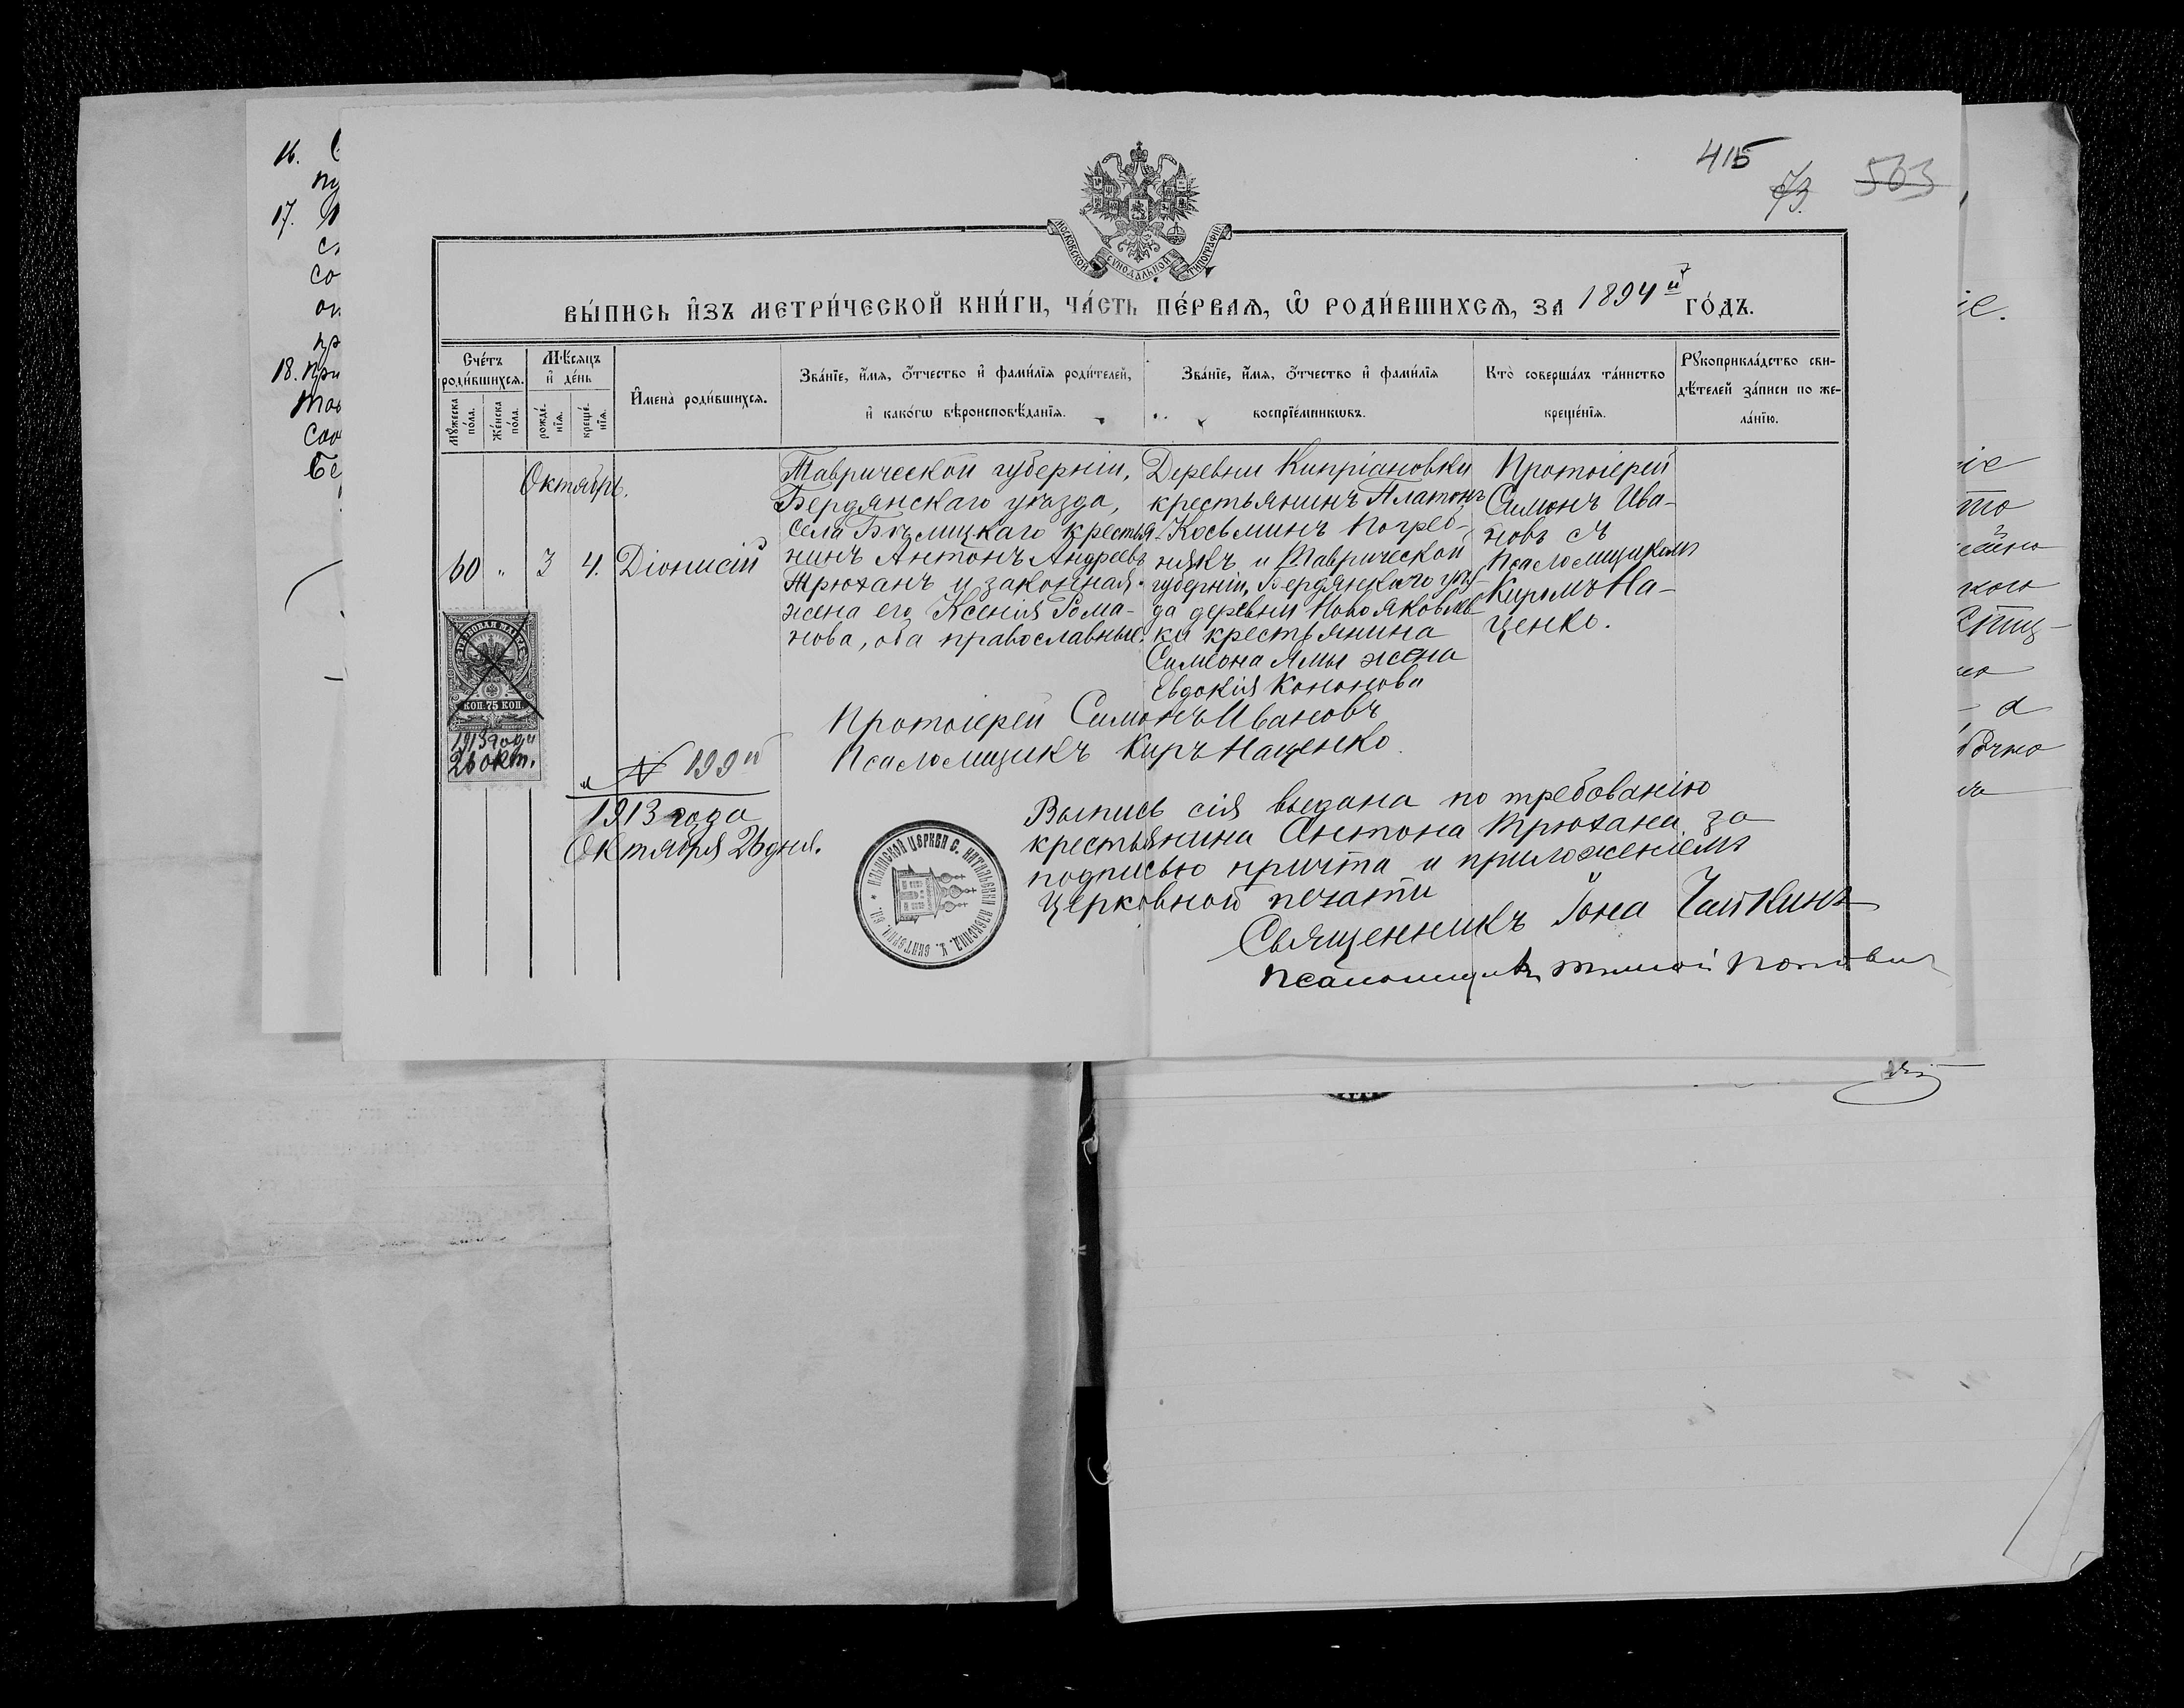 415
73.
503
МОСКОВСКОЙ СѴНОДАЛЬНОЙ ТИПОГРАФІИ
ВЫ́ПИСЬ И҆ЗЪ МЕТРИ́ЧЕСКОЙ КНИ́ГИ, ЧА́СТЬ ПЕ́РВАЯ, Ѡ҆ РОДИ́ВШИХСЯ, ЗА 1894й ГО́ДЪ.
Сче́тъ роди́вшихся.
Му́жеска по́ла.
Же́нска по́ла.
Мѣ́сяцъ и҆ де́нь
рожде́нїя.
креще́нїя.
И҆мена̀ роди́вшихся.
Зва́нїе, и҆́мя, ѻ҆́тчество и҆ фами́лїя роди́телей,
и҆ како́гѡ вѣроисповѣ́данїя.
Зва́нїе, и҆́мя, ѻ҆́тчество и҆ фами́лїя
воспрїе́мникѡвъ.
Кто̀ соверша́лъ та́инство
креще́нїя.
Рꙋкоприкла́дство сви-
дѣ́телей за́писи по же-
ла́нїю.
Октябрь.
60 " 3 4. Діонисій
Таврической губерніи,
Бердянскаго уѣзда,
села Бѣлицкаго крестья-
нинъ Антонъ Андреевъ
Трюханъ и законная
жена его Ксенія Рома-
нова, оба православные.
Деревни Кипріановки
крестьянинъ Платонъ
Косьминъ Погреб-
някъ и Таврической
губерніи, Бердянскаго уѣз-
да деревни Новояковлев-
ки крестьянина
Симеона Ямы жена
Евдокія Кононова
Протоіерей
Симонъ Ива-
новъ съ
Псаломщикомъ
Киромъ На-
ценко.
Протоіерей Симонъ Ивановъ
Псаломщикъ Киръ Наценко.
ГЕРБОВАЯ МАРКА
КОП. 75 КОП.
1913 года
26 окт.
№ 199й
1913 года
Октября 26 дня.
Выпись сія выдана по требованію
крестьянина Антона Трюхана за
подписью причта и приложеніемъ
церковной печати
Священникъ Іона Чайкинъ
Псаломщикъ
16.
17.
18. При